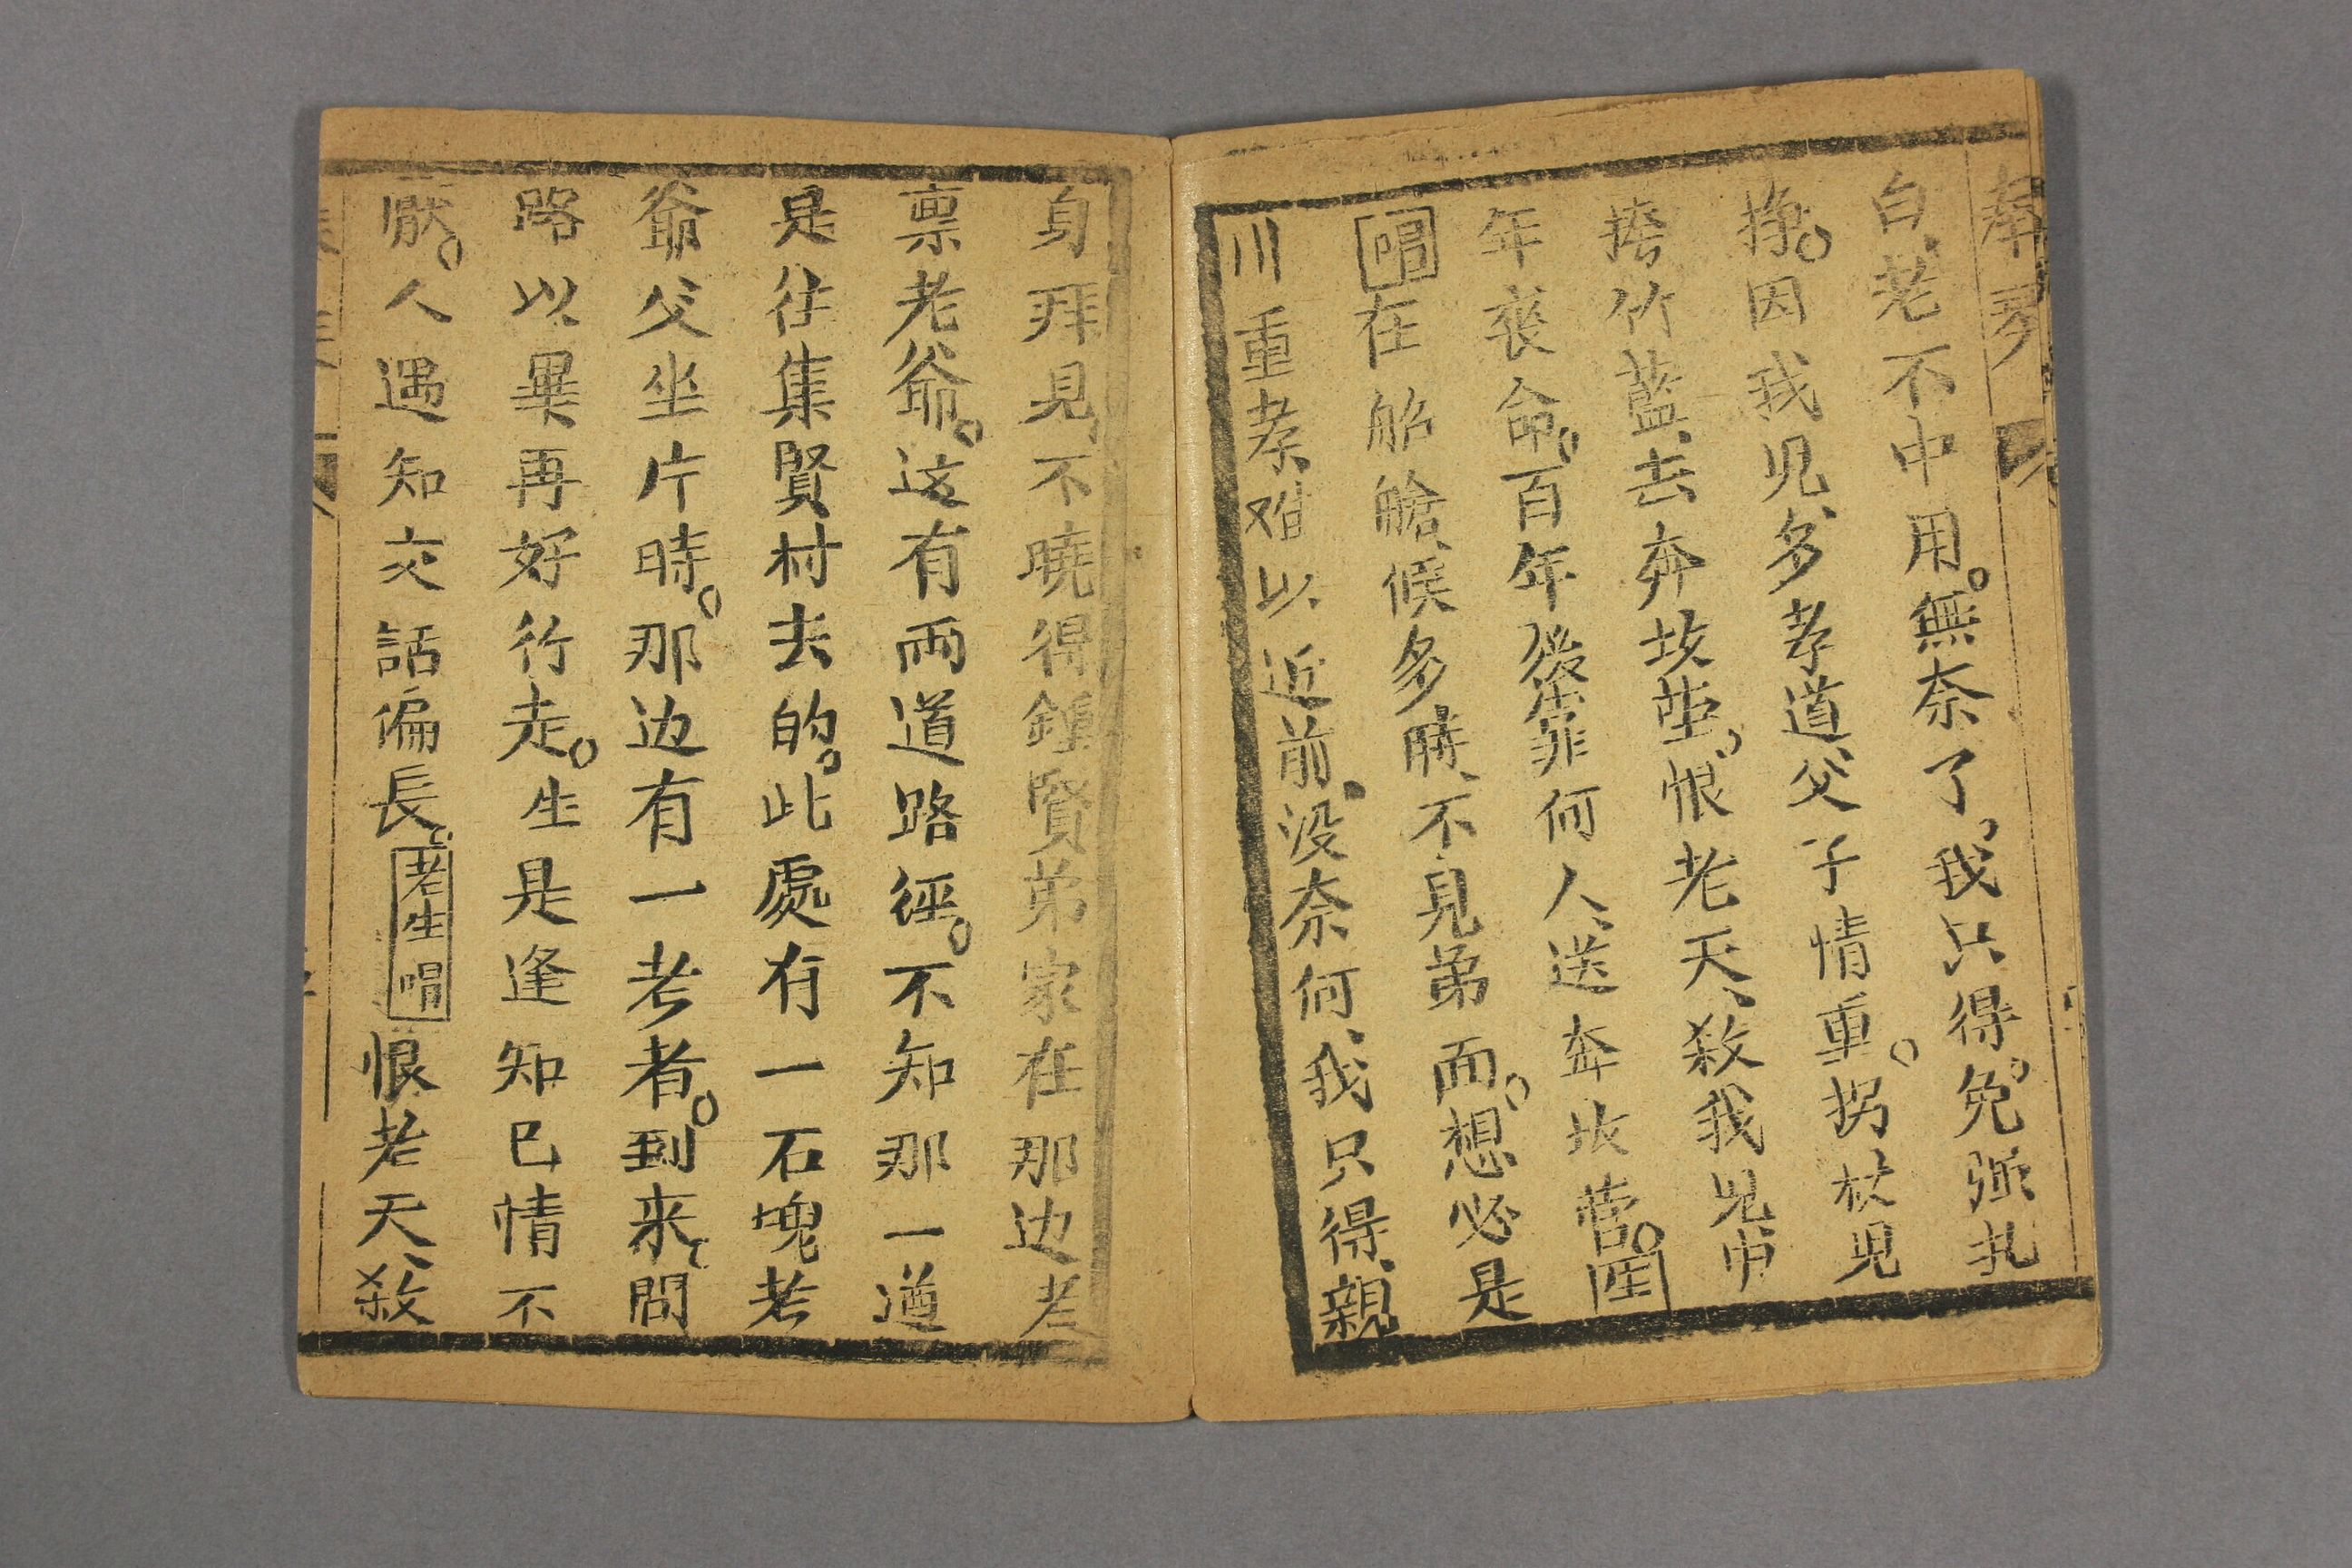 白老不中用。無奈了我只得。免强扎
掙。因我児多孝道父子情重。拐杖児
挎竹藍去奔坟茔恨老天殺我児中
年喪命。百年後靠何人送奔坟营。生
唱在船艙候多時不見弟面。想必是
川重孝难以近前没奈何我只得親
身拜見不曉得鍾賢弟家在那边老
禀老爺。这有両道路徑。不知那一道
是往集賢村去的。此處有一石塊老
爺父坐片時。那边有一老者。到来問
路以畢再好行走。生是逢知已情不
厭。人遇知交話偏長。老生唱恨老天殺